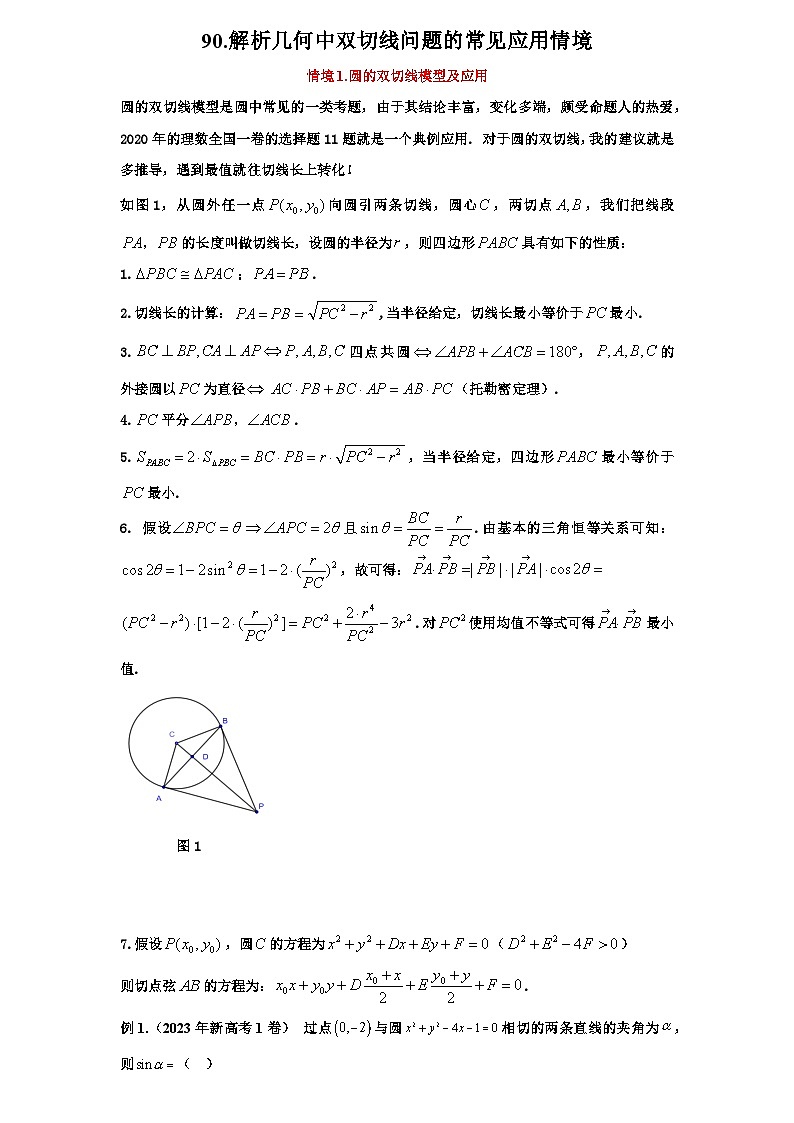 90.解析几何中双切线问题的常见应用情境
情境1.圆的双切线模型及应用
圆的双切线模型是圆中常见的一类考题，由于其结论丰富，变化多端，颇受命题人的热爱，
2020年的理数全国一卷的选择题11题就是一个典例应用．对于圆的双切线，我的建议就是
多推导，遇到最值就往切线长上转化！
如图1，从圆外任一点 P(x₀,y₀) 向圆引两条切线，圆心 C ，两切点 A,B ，我们把线段
PA，PB 的长度叫做切线长，设圆的半径为 r ，则四边形 PABC 具有如下的性质：
1. ΔPBC ≅ ΔPAC ； PA = PB ．
2.切线长的计算： PA = PB = √(PC² − r²) ,当半径给定，切线长最小等价于 PC 最小．
3. BC ⊥ BP, CA ⊥ AP ⇔ P, A, B, C 四点共圆 ⇔ ∠APB + ∠ACB = 180°， P, A, B, C 的
外接圆以 PC 为直径 ⇔ AC · PB + BC · AP = AB · PC （托勒密定理）．
4. PC 平分 ∠APB，∠ACB ．
5. S_PABC = 2 · S_ΔPBC = BC · PB = r · √(PC² − r²) ，当半径给定，四边形 PABC 最小等价于
PC 最小．
6. 假设 ∠BPC = θ ⇒ ∠APC = 2θ 且 sin θ = BC/PC = r/PC ．由基本的三角恒等关系可知：
cos 2θ = 1 − 2sin² θ = 1 − 2 · (r/PC)² ，故可得： PA→ · PB→ =| PB→ | · | PA→ | · cos 2θ =
(PC² − r²) · [1 − 2 · (r/PC)²] = PC² + 2 · r⁴/PC² − 3r² ．对 PC² 使用均值不等式可得 PA→ · PB→ 最小
值．
B
C
D
A
P
图1
7.假设 P(x₀,y₀) ，圆 C 的方程为 x² + y² + Dx + Ey + F = 0 （ D² + E² − 4F > 0 ）
则切点弦 AB 的方程为： x₀x + y₀y + D (x₀ + x)/2 + E (y₀ + y)/2 + F = 0 ．
例1.（2023年新高考1卷） 过点 (0,−2) 与圆 x² + y² − 4x − 1 = 0 相切的两条直线的夹角为 α ，
则 sin α = （ ）